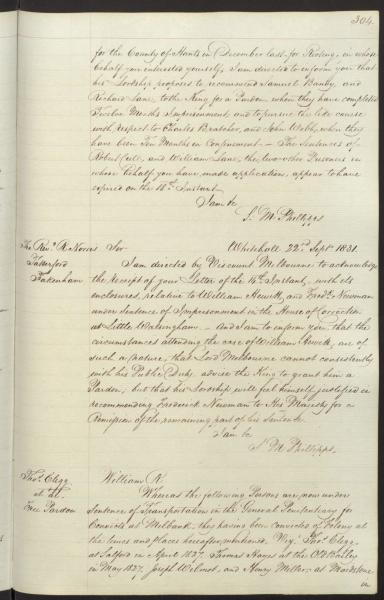 304
for the County of Hants in December last for Rioting, in whose
behalf you interested yourself, I am directed to inform you that
his Lordship proposes to recommend Samuel Banby, and
Richard Lane, to the King for a Pardon when they have completed
Twelve Months Imprisonment, and to pursue the like course
with respect to Charles Bratcher, and John Webb, when they
have been Ten Months in Confinement – The Sentences of
Robert Cull, and William Lane, the two other Prisoners in
whose behalf you have made application, appear to have
expired on the 18th Instant
I am &c
S. M. Phillipps
The Revd. R. Norris
Tatterford
Fakenham
Sir
Whitehall 22d. Septr. 1831.
I am directed by Viscount Melbourne to acknowledge
the Receipt of your Letter of the 14th Instant, with its
enclosures, relative to William Hewett, and Fredk. Newman
under sentence of Imprisonment in the House of Correction
at Little Walsingham – And I am to inform you that the
circumstances attending the case of William Hewett, are of
such a nature, that Lord Melbourne cannot consistently
with his Public Duty, advise the King to grant him a
Pardon, but that his Lordship will feel himself justified in
recommending Frederick Newman to His Majesty for a
Remission of the remaining part of his Sentence.
I am &c
S M Phillipps.
Thos. Clegg
et al.
Free Pardon
William R.
Whereas the following Persons are now under
Sentence of Transportation in the General Penitentiary for
Convicts at Milbank, they having been convicted of Felony at
the times and places hereafter mentioned, Viz. Thos. Clegg
at Salford in April 1827. Thomas Hawes at the Old Bailey
in May 1827, Joseph Wilmot, and Henry Miller, at Maidstone
in